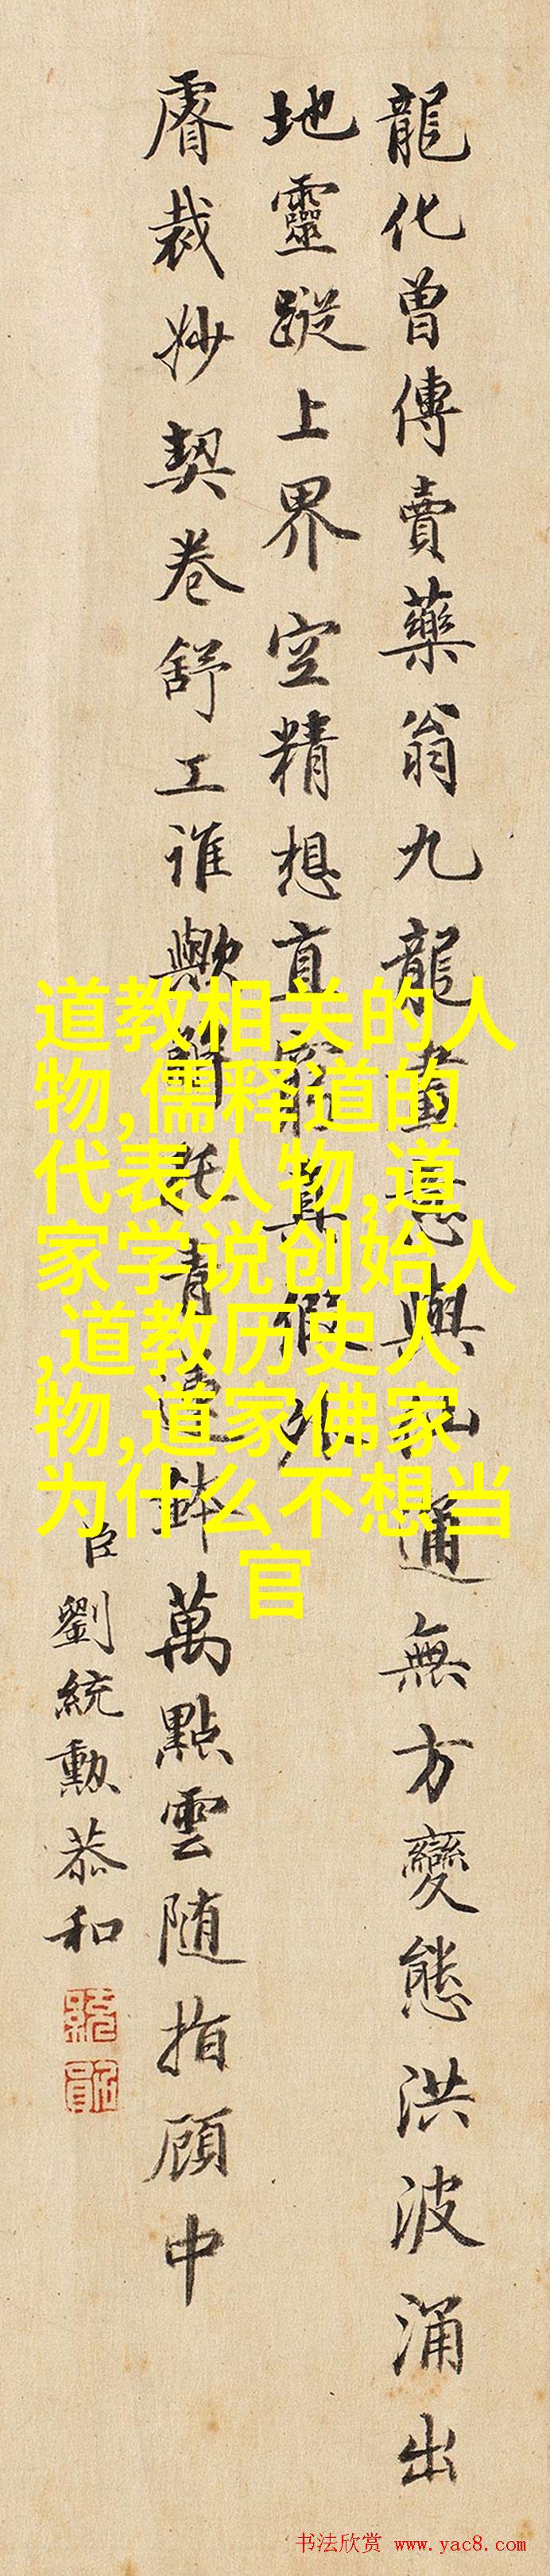 龍化曾傳賣藥翁九龍畫意與 通無方變態洪波涌出
地靈蹤上界空精想直窮真假外
睿裁妙契卷舒工誰歟 託青蓮鉢萬點雲随指顧中
臣劉統勳恭和
道教相关的人
物,儒释道的
代表人物,道
家学说创始人
,道教历史人
物,道家佛家
为什么不想当
官
书法欣赏 www.yac8.com